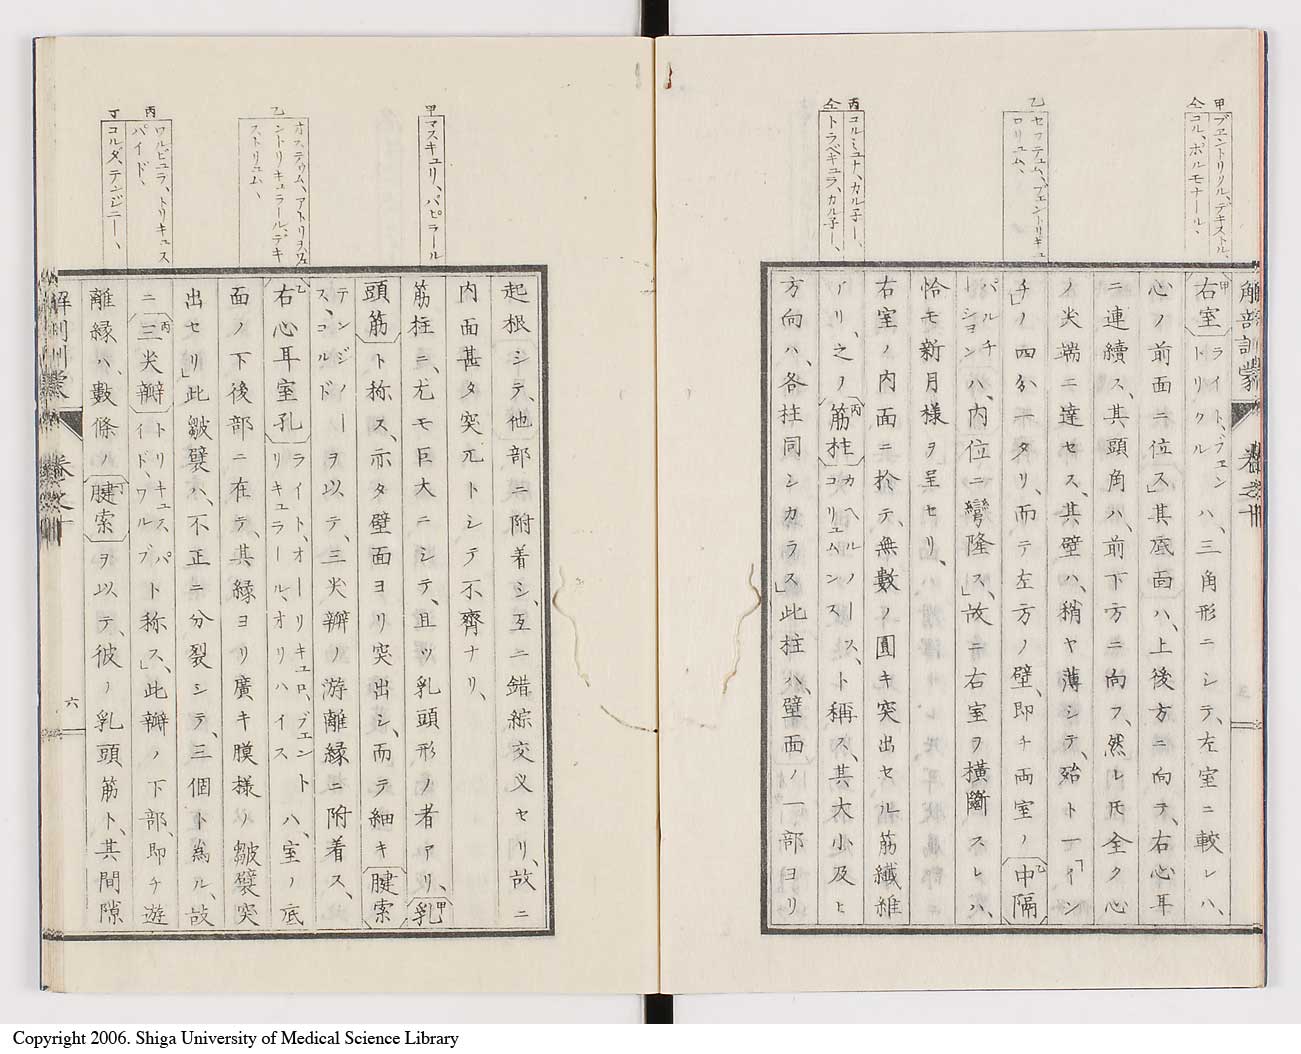 甲 ブエントリクル、デキストル、
仝 コル、ポルモナール、
乙 セプテュム、ブェントリキュ
ロリュム、
丙 コルミュナ、カル子ー、
仝 トラベキュラ、カル子ー、
解剖訓蒙 卷之十
右室 ライト、ブェン
トリクル ハ、三角形ニシテ、左室ニ較レハ、
心ノ前面ニ位ス」其底面ハ、上後方ニ向テ、右心耳
ニ連續ス、其頭角ハ、前下方ニ向フ、然レ𪜈全ク心
ノ尖端ニ達セス、其壁ハ、稍ヤ薄シテ、殆ト一「イン
チ」ノ四分一タリ、而テ左方ノ壁、即チ両室ノ中隔
パルチ
ーション ハ、内位ニ彎隆ス」故ニ右室ヲ横斷スレハ、
恰モ新月様ヲ呈セリ、
右室ノ内面ニ於テ、無數ノ圓キ突出セル筋纎維
アリ、之ノ筋柱 カヘルノース、
コリュムンス ト稱ス、其大小及ヒ
方向ハ、各柱同シカラス」此柱ハ、壁面ノ一部ヨリ
甲 マスキュリ、パピラール
乙 オステゥム、アトリヲ、ブェ
ントリキュラール、デキ
ストリュム、
丙 ワルビュラ、トリキュス
パイド、
丁 コルダ、テンジニー、
起根シテ、他部ニ附着シ、互ニ錯綜交叉セリ、故ニ
内面甚タ突兀トシテ不齊ナリ、
筋柱ニ、尤モ巨大ニシテ、且ツ乳頭形ノ者アリ、乳
頭筋ト称ス、亦タ壁面ヨリ突出シ、而テ細キ腱索
テンジノー
ス、コルド ヲ以テ、三尖瓣ノ游離縁ニ附着ス、
右心耳室孔 ライト、オーリキュロ、ブェント
リキュラール、オリハイス ハ、室ノ底
面ノ下後部ニ在テ、其縁ヨリ廣キ膜様ノ皺襞突
出セリ」此皺襞ハ、不正ニ分裂シテ、三個ト為ル、故
ニ三尖瓣 トリキュス、パ
イド、ワルブ ト称ス」此瓣ノ下部、即チ遊
離縁ハ、數條ノ腱索ヲ以テ、彼ノ乳頭筋ト、其間隙
解剖訓蒙 卷之十
六
Copyright 2006. Shiga University of Medical Science Library